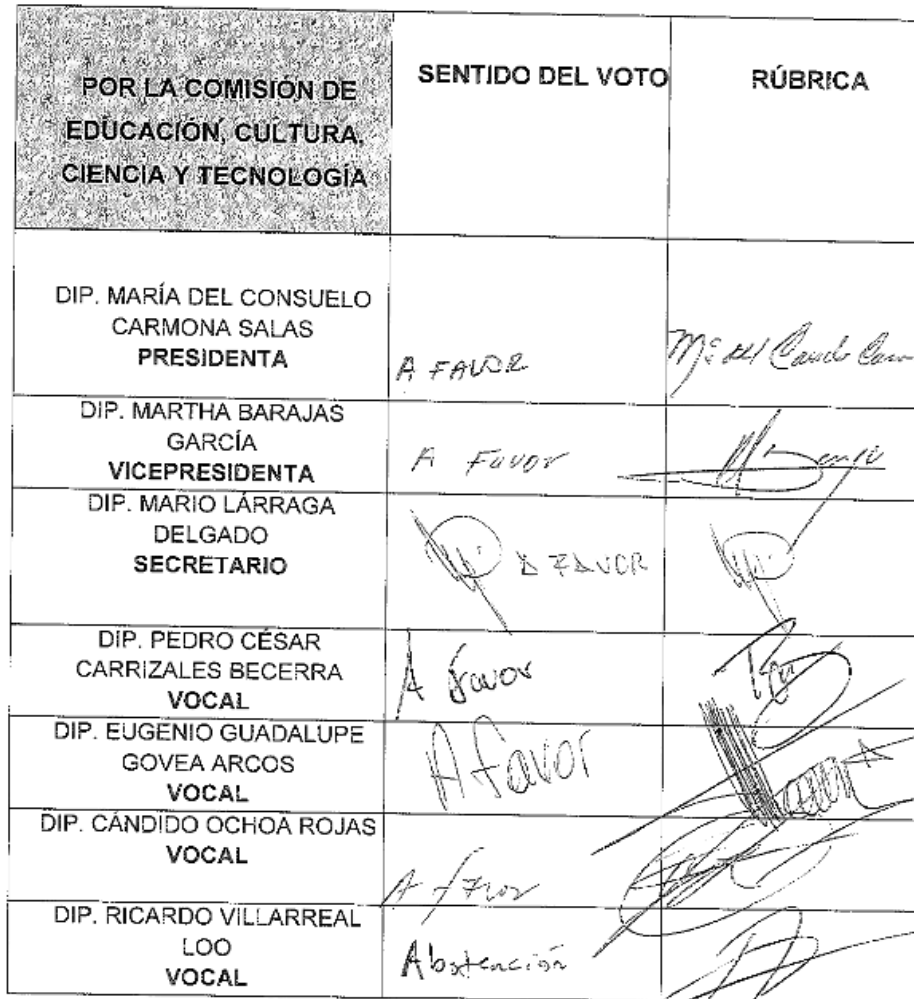 POR LA COMISIÓN DE
EDUCACIÓN, CULTURA,
CIENCIA Y TECNOLOGÍA
SENTIDO DEL VOTO
RÚBRICA
DIP. MARÍA DEL CONSUELO
CARMONA SALAS
PRESIDENTA
A FAVOR
DIP. MARTHA BARAJAS
GARCÍA
VICEPRESIDENTA
A Favor
DIP. MARIO LÁRRAGA
DELGADO
SECRETARIO
A FAVOR
DIP. PEDRO CÉSAR
CARRIZALES BECERRA
VOCAL
A favor
DIP. EUGENIO GUADALUPE
GOVEA ARCOS
VOCAL
A favor
DIP. CÁNDIDO OCHOA ROJAS
VOCAL
A
DIP. RICARDO VILLARREAL
LOO
VOCAL
Abstención